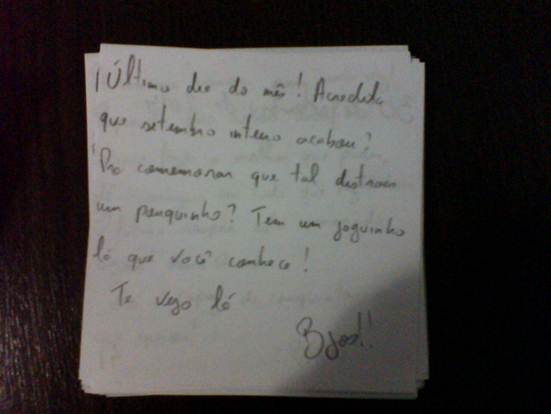 ¡Último dia do mês! Acredita
que setembro inteiro acabou?
Pra comemorar que tal distrair
um pouquinho? Tem um joguinho
lá que você conhece!
Te vejo lá
Bjos!!